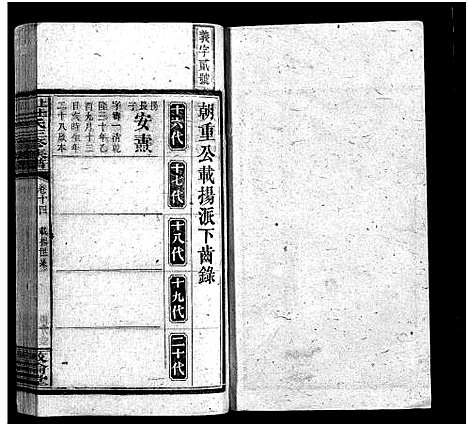 義字貳號
朝重公載揚派下齒錄
十六代
十七代
十八代
十九代
二十代
揚長子
安燾
字壽一清乾
隆三十年乙
酉九月十三
日亥時生年
二十八歲夲
卷十四
載揚世系